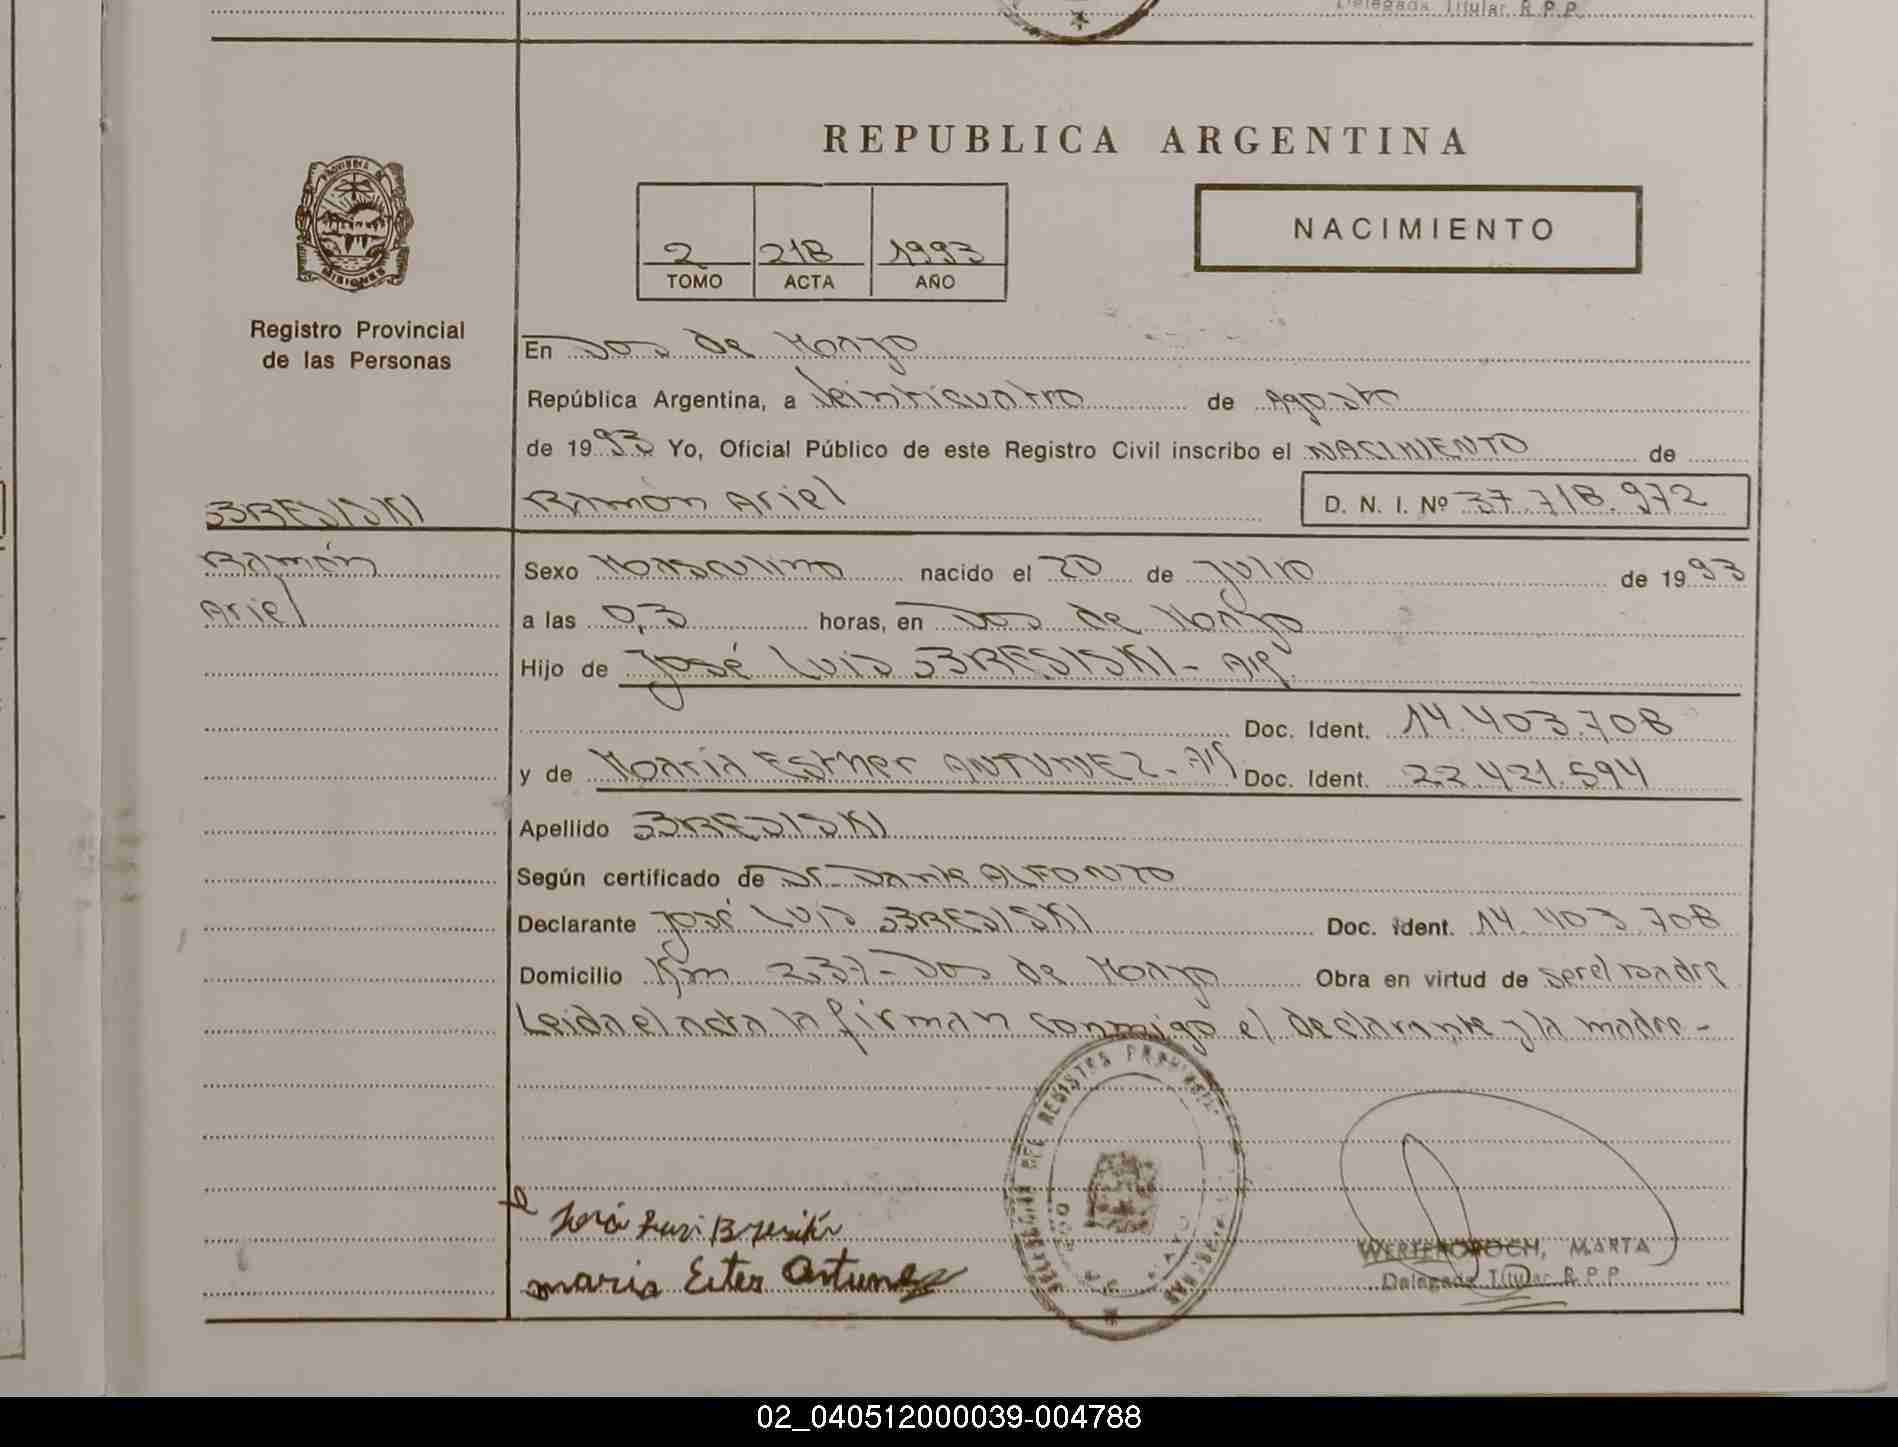 Delegada Titular R.P.P.
REPUBLICA ARGENTINA
PROVINCIA DE
MISIONES
2 218 1993
TOMO ACTA AÑO
NACIMIENTO
Registro Provincial
de las Personas
En Dos de Mayo
República Argentina, a Veinticuatro de Agosto
de 1993 Yo, Oficial Público de este Registro Civil inscribo el NACIMIENTO de
BRESISKI
Ramón Ariel D. N. I. Nº 37.718.972
Ramón
Ariel
Sexo Masculino nacido el 20 de Julio de 1993
a las 0,3 horas, en Dos de Mayo
Hijo de José Luis BRESISKI - Ar
Doc. Ident. 14.403.708
y de María Esther ANTUNEZ - Doc. Ident. 22.421.594
Apellido BRESISKI
Según certificado de Dr. Dante ALFONZO
Declarante José Luis BRESISKI Doc. Ident. 14.403.708
Domicilio Km 237 - Dos de Mayo Obra en virtud de ser el padre
Leida el acta la firman conmigo el declarante y la madre -
maria Ester Antunez
MARTA
Delegada Titular R.P.P.
02_040512000039-004788